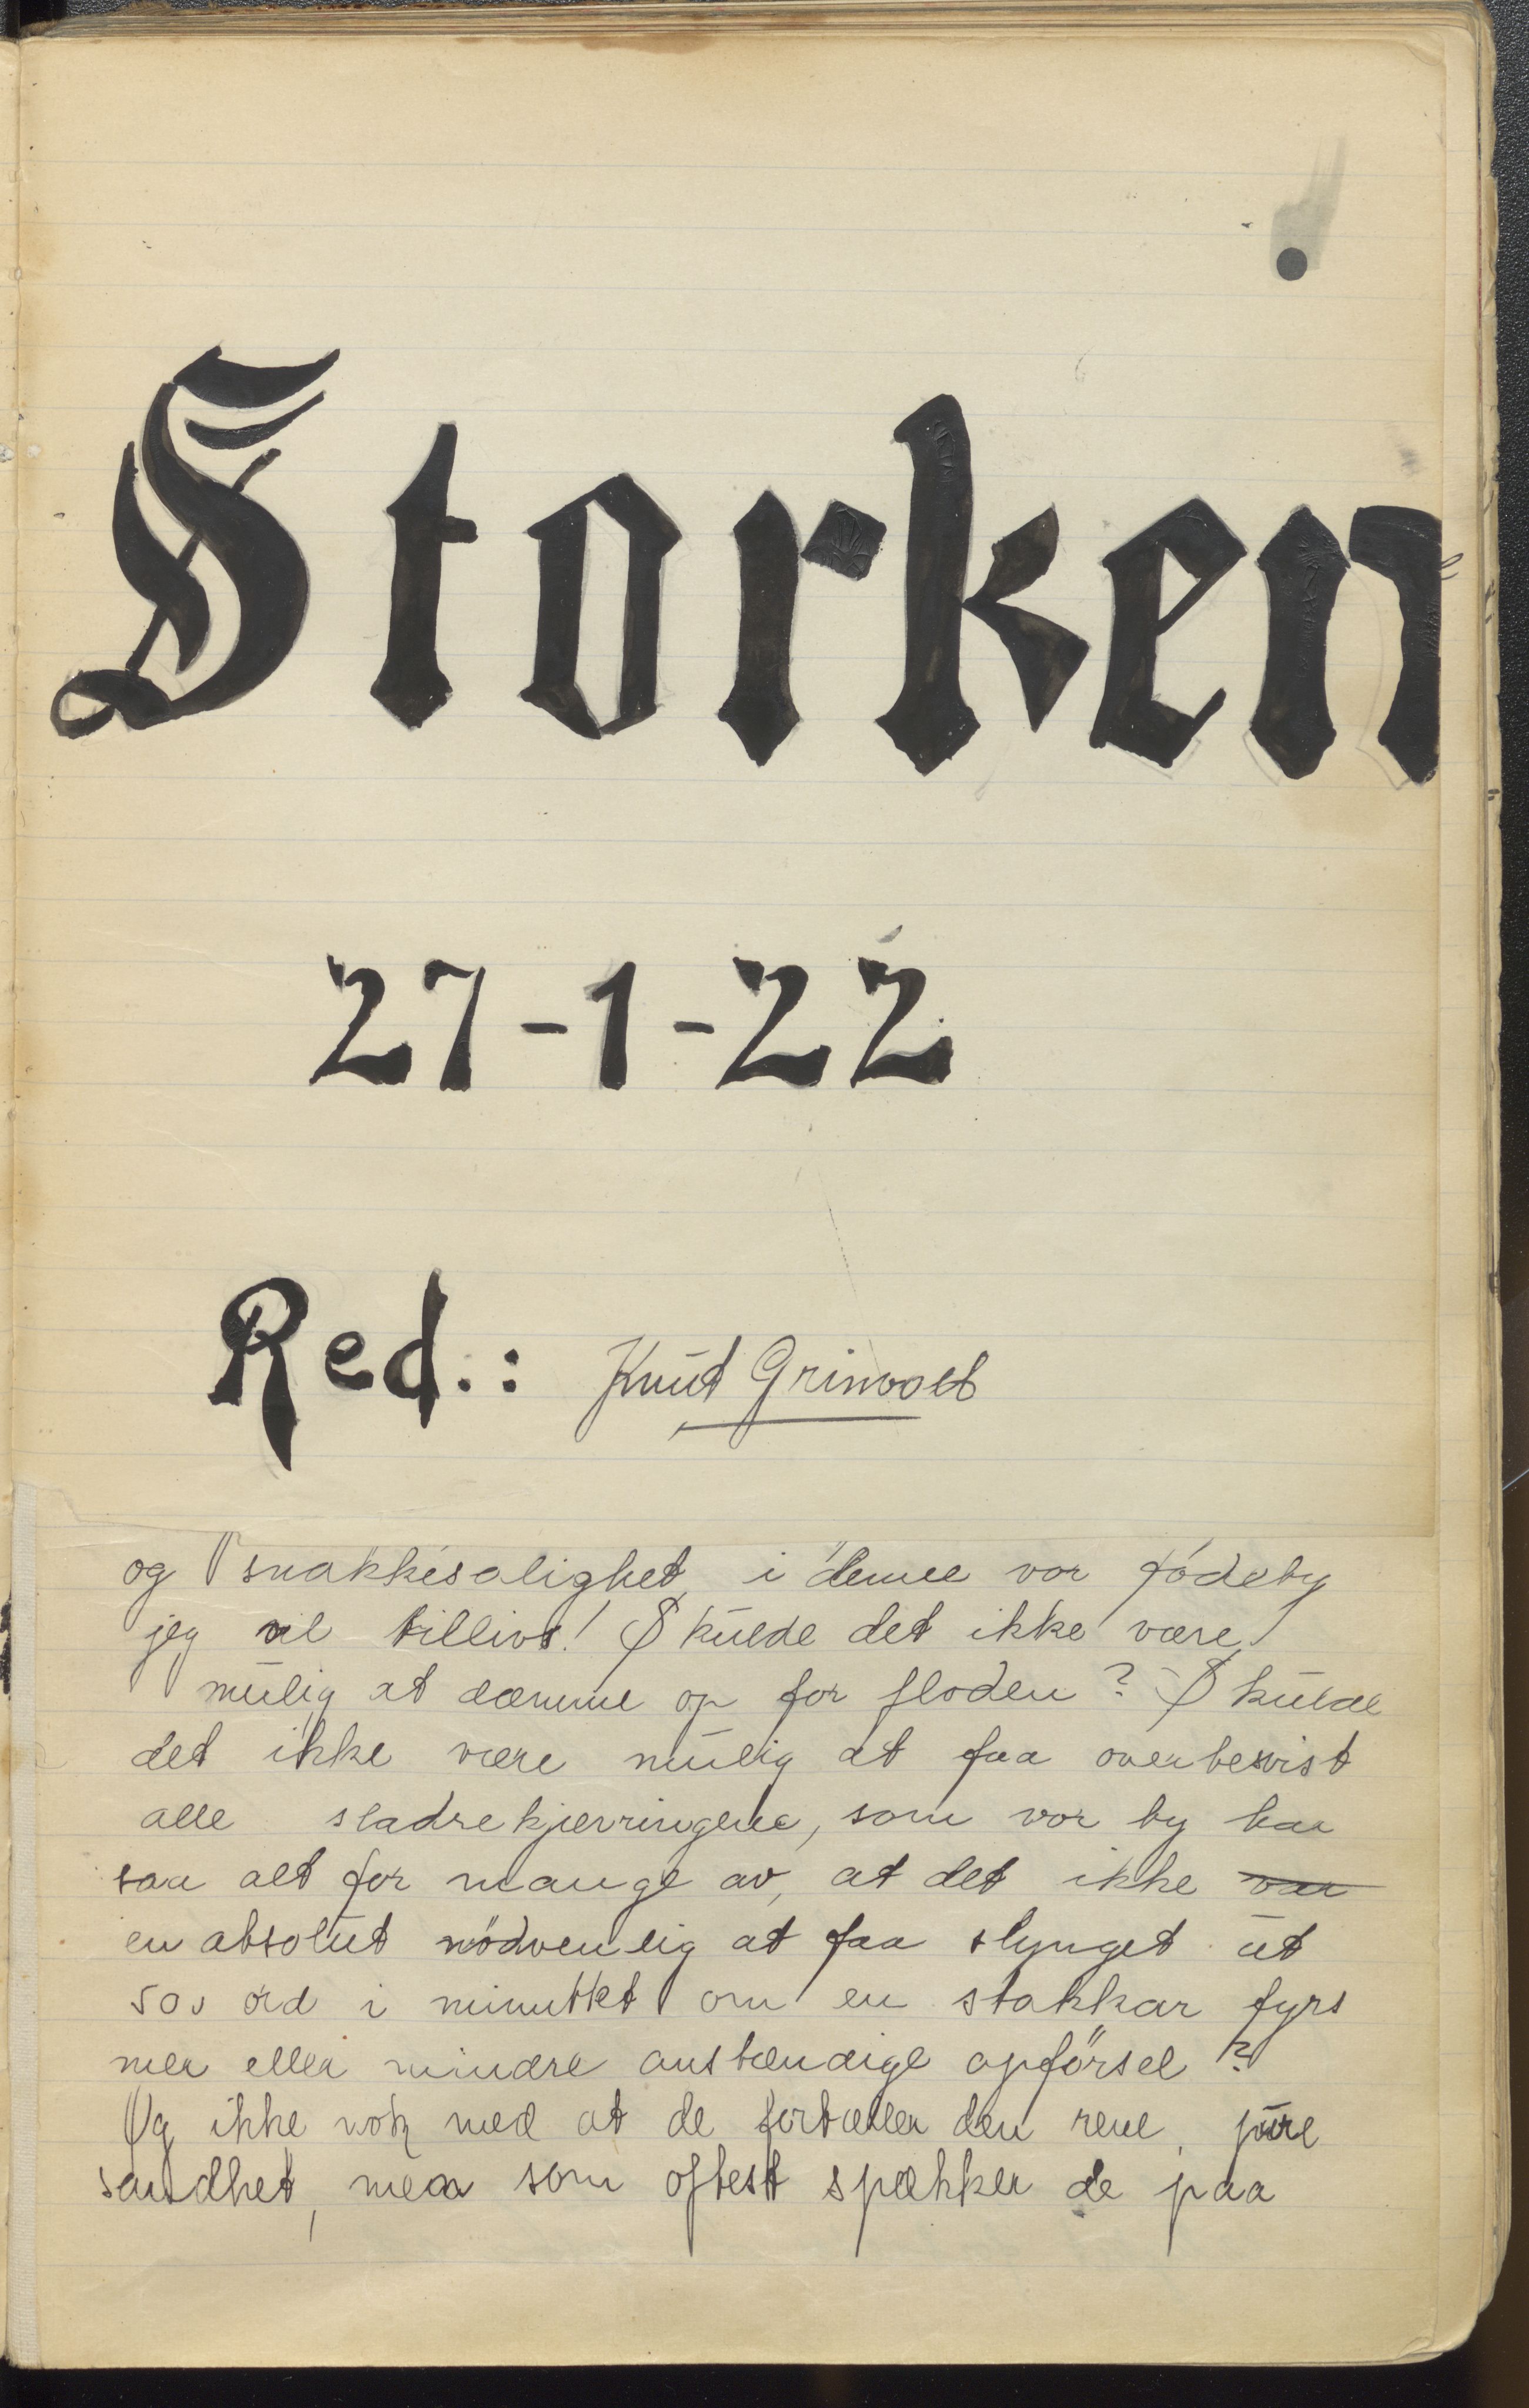 Storken
27-1-22
Red.: Knut Grimvolt
og snakkesalighet i denne vor fødeby
jeg vil tillivs! Skulde det ikke være
mulig at dæmme op for floden? Skulde
det ikke være mulig at faa overbevist
alle sladrekjærringene, som vor by har
saa alt for mange av, at det ikke var
en absolut nødvenlig at faa slynget ut
500 ord i minuttet om en stakkar fyrs
mer eller mindre anstændige opførsel?
Og ikke nok med at de fortæller den rene, pure
sandhet, men som oftest spækker de paa